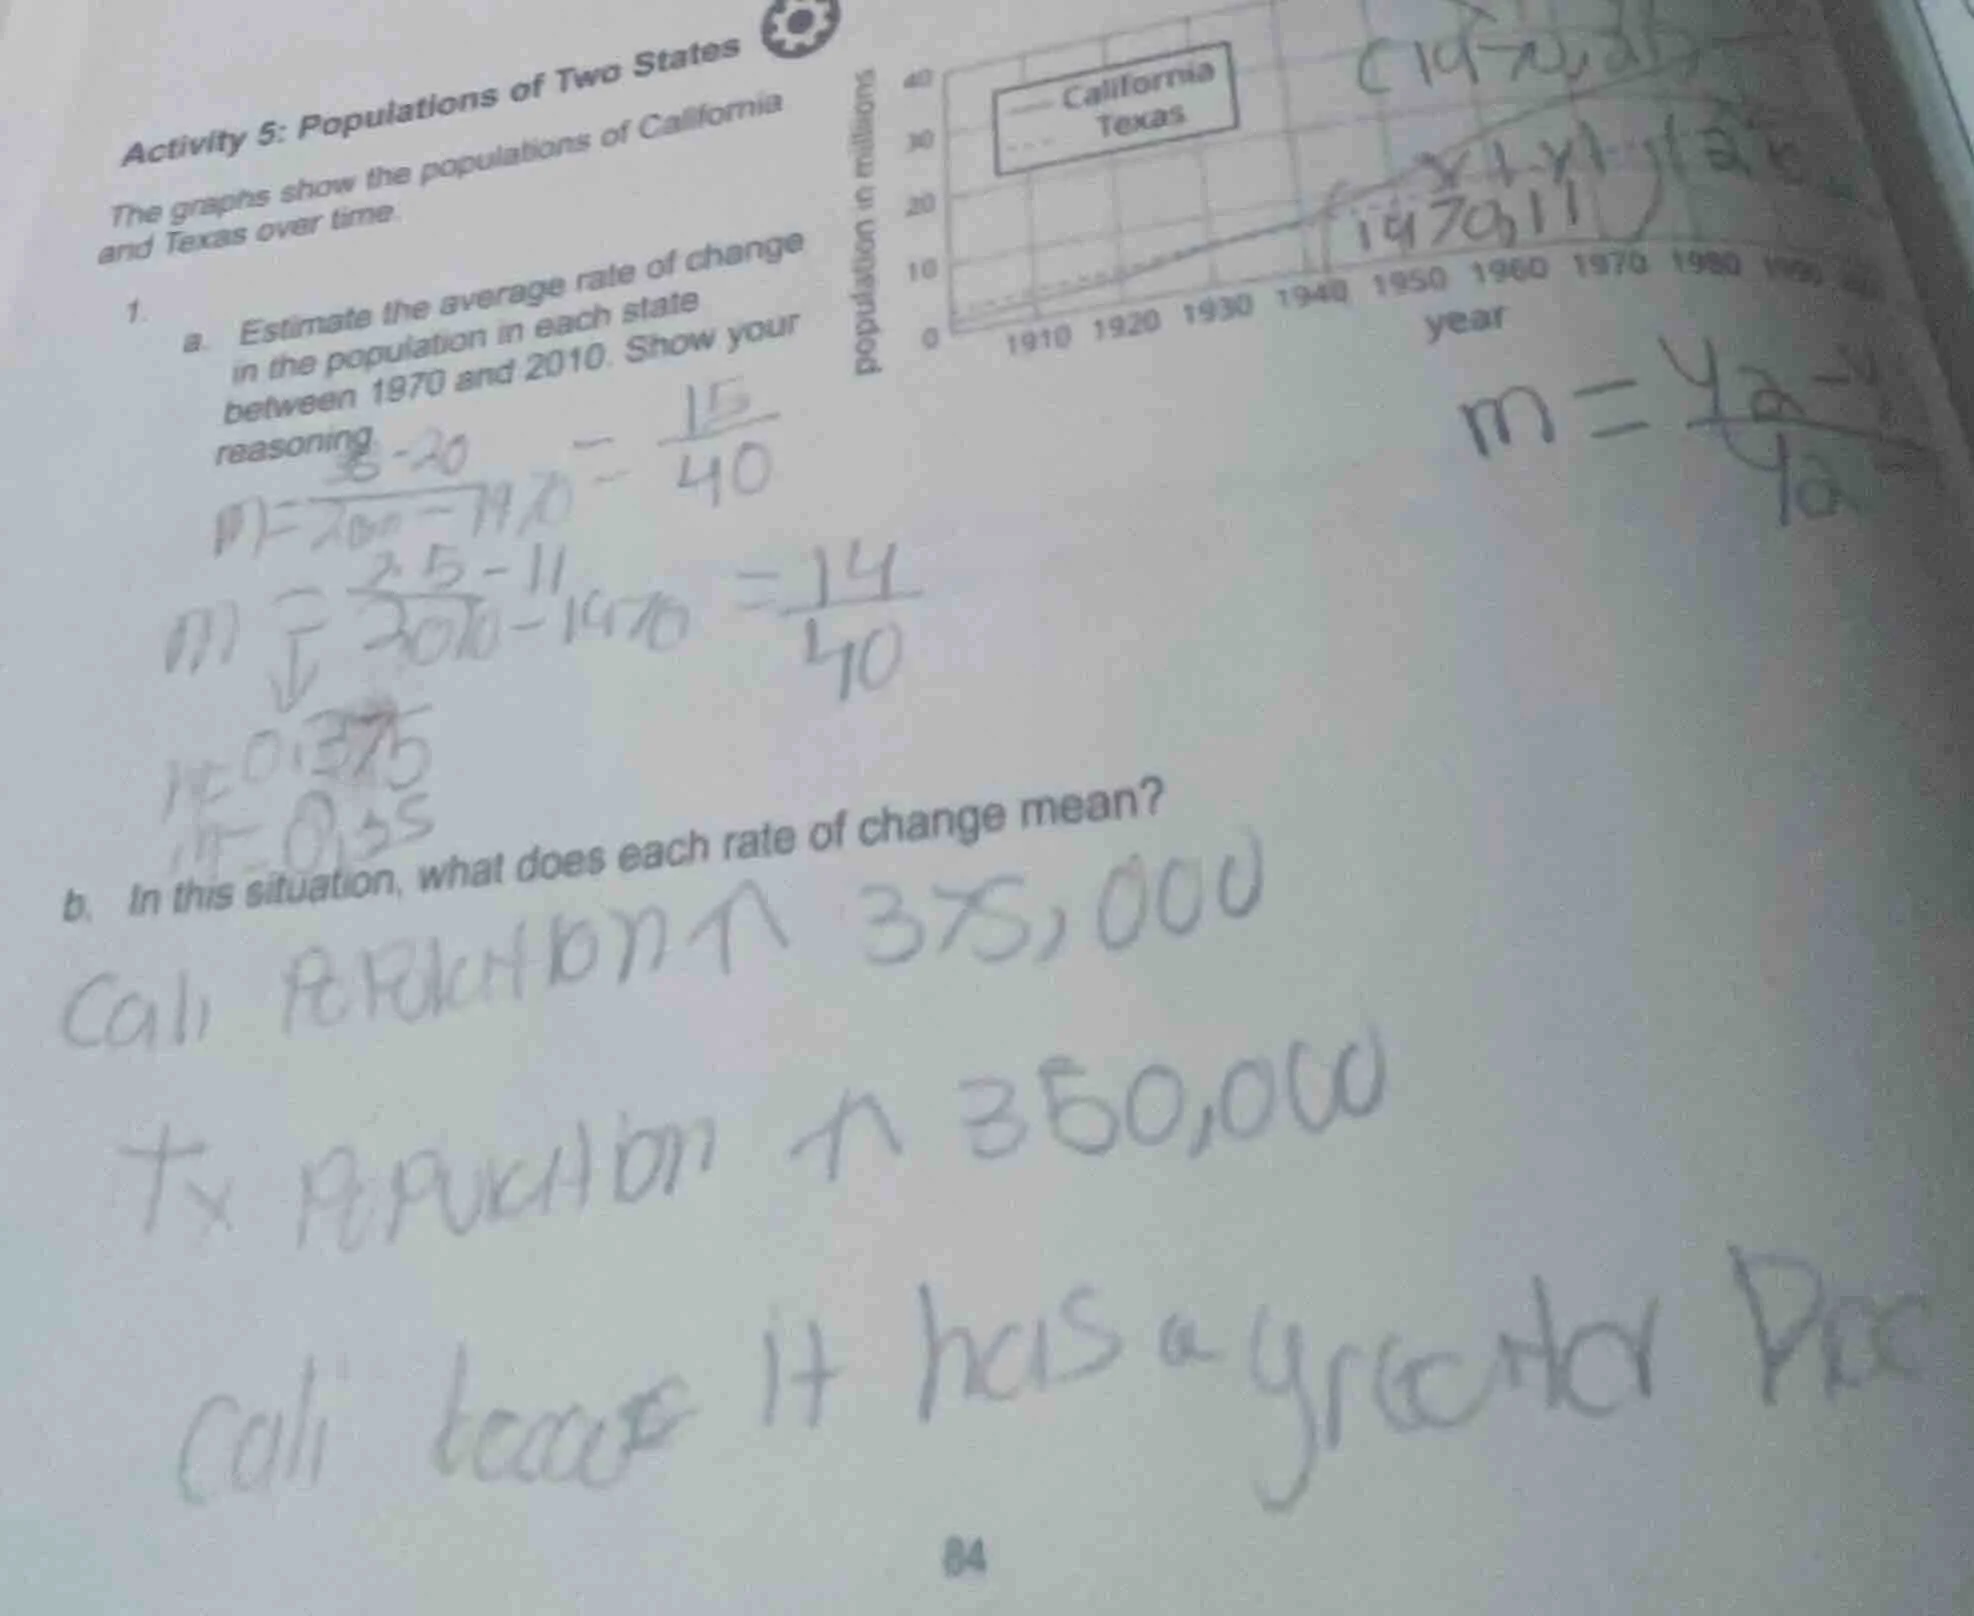 Activity 5: Populations of Two States
The graphs show the populations of California
and Texas over time.
1.
a. Estimate the average rate of change
in the population in each state
between 1970 and 2010. Show your
reasoning.
m = 35-20 / 2010 - 1970 = 15 / 40
m = 25-11 / 2010-1970 = 14 / 40
m=0.375
m=0.35
population in millions
40
30
20
10
0
California
Texas
(1970,
1970,11
1910 1920 1930 1940 1950 1960 1970 1980 1990
year
m = y2-y
b. In this situation, what does each rate of change mean?
Cali ↑ 375,000
Tx ↑ 350,000
Cali it has a
84